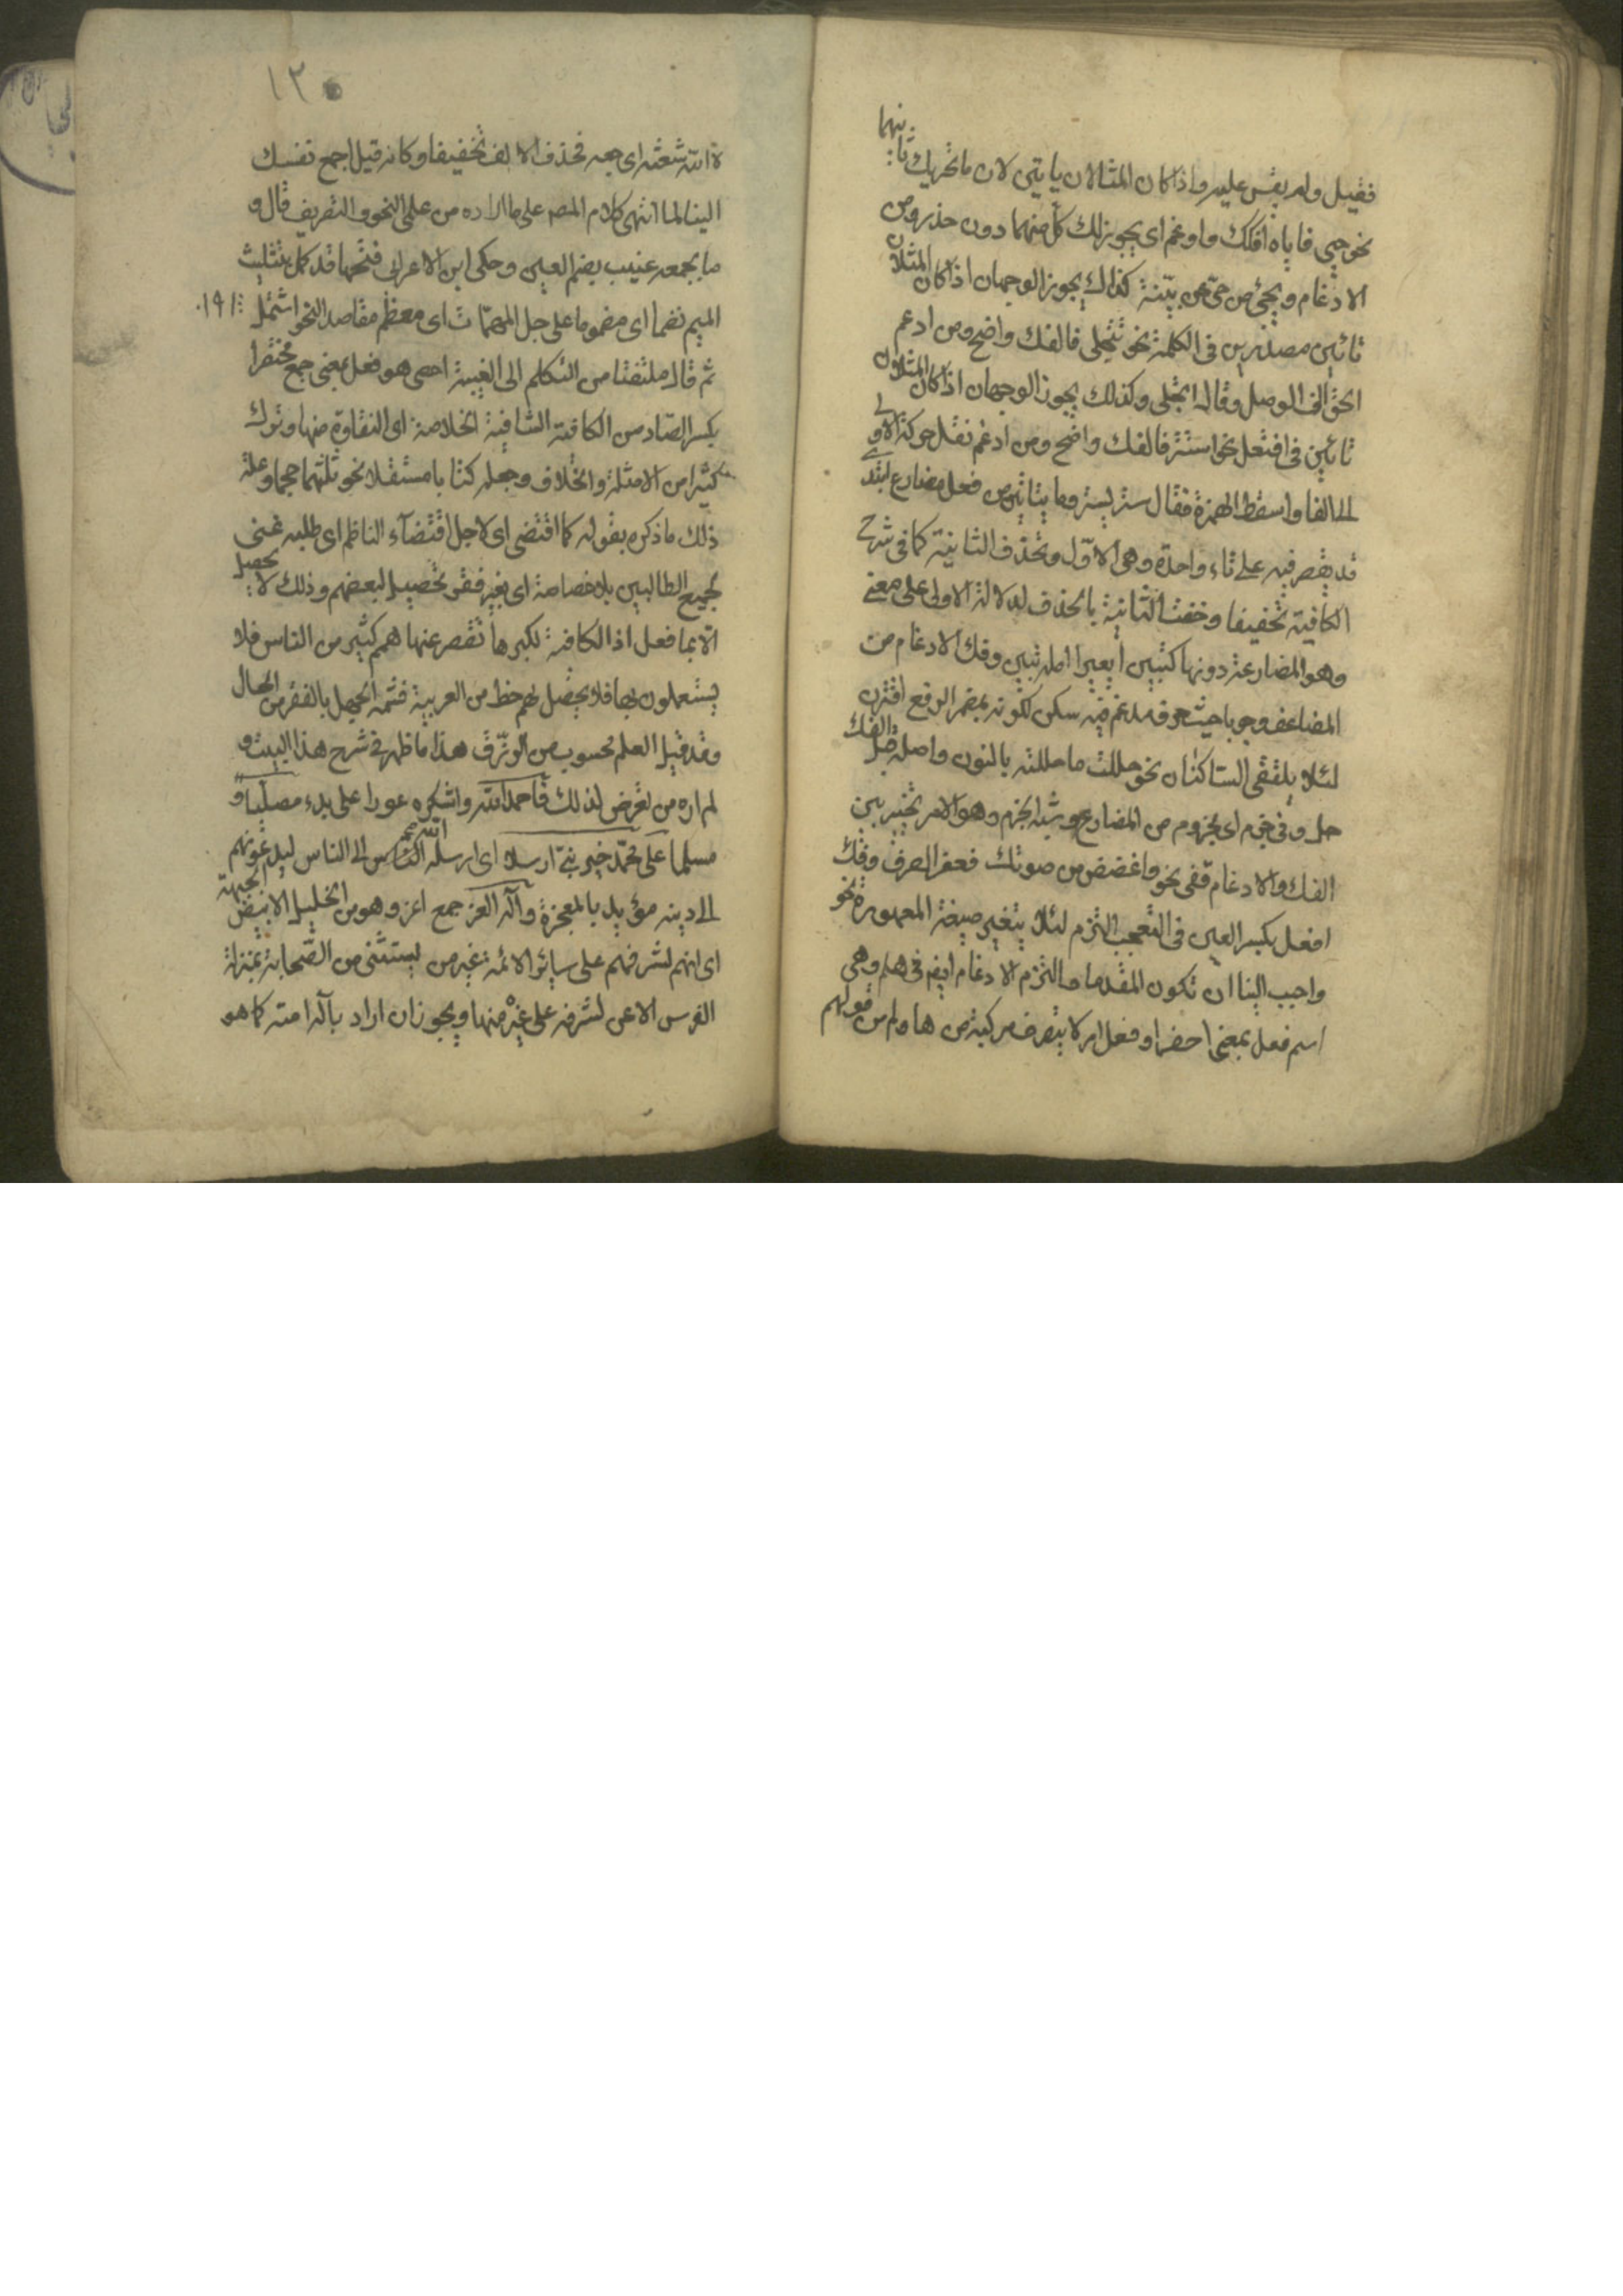 ففيل ولم يقس عليه واذا كان المثلان يايتي لان ما تحريك ثانيهما
نحو حيي فاياه افكك وادغم اى يجوز لك كل منهما دون حذر ومن
الادغام ويحيى من حي عن بينة كذاك يجوز الوجهان اذا كان المثلان
تائين مصدرين فى الكلمة نحو تتجلى فالفك واضح ومن ادغم
الحق الف الوصل وقال اتجلى وكذلك يجوز الوجهان اذا كان المثلان
تائين فى افتعل نحو استتر فالفك واضح ومن ادغم نقل حركة الاولى
الى الفا واسقط الهمزة فقال ستر يستر وما بتائين من فعل مضارع ابتدى
قد يقصر فيه على تاء واحدة وهى الاول وتحذف الثانية كما فى شرح
الكافية تخفيفا وخفت الثانية بالحذف لدلالة الاولى على معنى
وهو المضارعة دونها كتبين العبر اصله تتبين وفك الادغام من
المضاعف وجوبا حيث حرف مدغم فيه سكن لكونه بمضمر الرفع اقترن
لئلا يلتقى الساكنان نحو حللت ما حللته بالنون واصله قبل الفك
حل وفى جزم اى مجزوم من المضارع وشبه الجزم وهو الامر تخيير بين
الفك والادغام قفى نحو واغضض من صوتك فعض الطرف وفك
افعل بكسر العين فى التعجب التزم لئلا يتغير صيغة المعهودة نحو
واحبب الينا ان تكون المقدما والتزم الادغام ايضا فى هلم وهى
اسم فعل بمعنى احضر او فعل امر لا يتصرف مركبة من ها ولم من قولهم
١٣٠
لم الله شعثه اى جمعه فحذف الالف تخفيفا وكانه قيل اجمع نفسك
الينا لما انتهى كلام المصـ على ما اراده من علمى النحو والتصريف قال و
ما بجمعه عنيت بضم العين وحكى ابن الاعرابى فتحها قد كمل بتثليث
الميم نضما اى منضوما على جل المهمات اى معظم مقاصد النحو اشتمل
ثم قال ملتفتا من التكلم الى الغيبة احصى هو فعل بمعنى جمع مختصرا
بكسر الصاد من الكافية الشافية الخلاصة اى النقاوة منها وترك
كثيرا من الامثلة والخلاف وجعله كتابا مستقلا نحو ثلثها حجما وعلة
ذلك ما ذكره بقوله كما اقتضى اى لاجل اقتضاء الناظم اى طلبه غنى
لجميع الطالبين بلا خصاصة اى بغير فقر تحصيل لبعضهم وذلك لا يحصل
الا بما فعل اذ الكافية لكبرها تقصر عنها همم كثير من الناس فلا
يشتعلون بها فلا يحصل لهم حظ من العربية فشبه الجهل بالفقر من المال
وقد قيل العلم محسوب من الرزق هذا ما ظهر فى شرح هذا البيت و
لم اره من تعرض لذلك فاحمد الله واشكره عودا على بدء مصليا و
مسلما على محمد خير نبى ارسلا اى ارسله الله الى الناس ليدعوهم
الى دينه مؤيد بالمعجزة وآله الغر جمع اغر وهو من الخيل الابيض الجبهة
اى انهم لشرفهم على سائر الائمة غير من يستثنى من الصحابة بمنزلة
الفرس الاغر لشرفه على غيره منها ويجوز ان اراد بآله امته كما هو